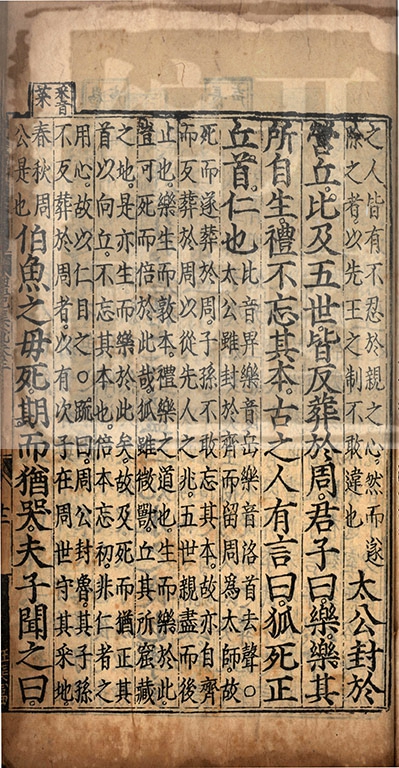 采音菜
之人皆有不忍於親之心。然而遂
除之者。以先王之制不敢違也
太公封於
營丘。比及五世。皆反葬於周。君子曰。樂。樂其
所自生。禮不忘其本。古之人有言曰。狐死正
丘首。仁也
比音界樂音岳樂音洛首去聲○
太公雖封於齊。而留周爲太師。故
死而遂葬於周。子孫不敢忘其本。故亦自齊
而反葬於周。以從先人之兆。五世親盡而後
止也。樂生而敦本。禮樂之道也。生而樂於此。
豈可死而倍於此哉。狐雖微獸。丘其所窟藏
之地。是亦生而樂於此矣。故及死而猶正其
首以向丘。不忘其本也。倍本忘初。非仁者之
用心。故以仁目之○疏曰。周公封魯。其子孫
不反葬於周者。以有次子在周。世守其采地。
春秋周
公是也
伯魚之母死。期而猶哭。夫子聞之曰。